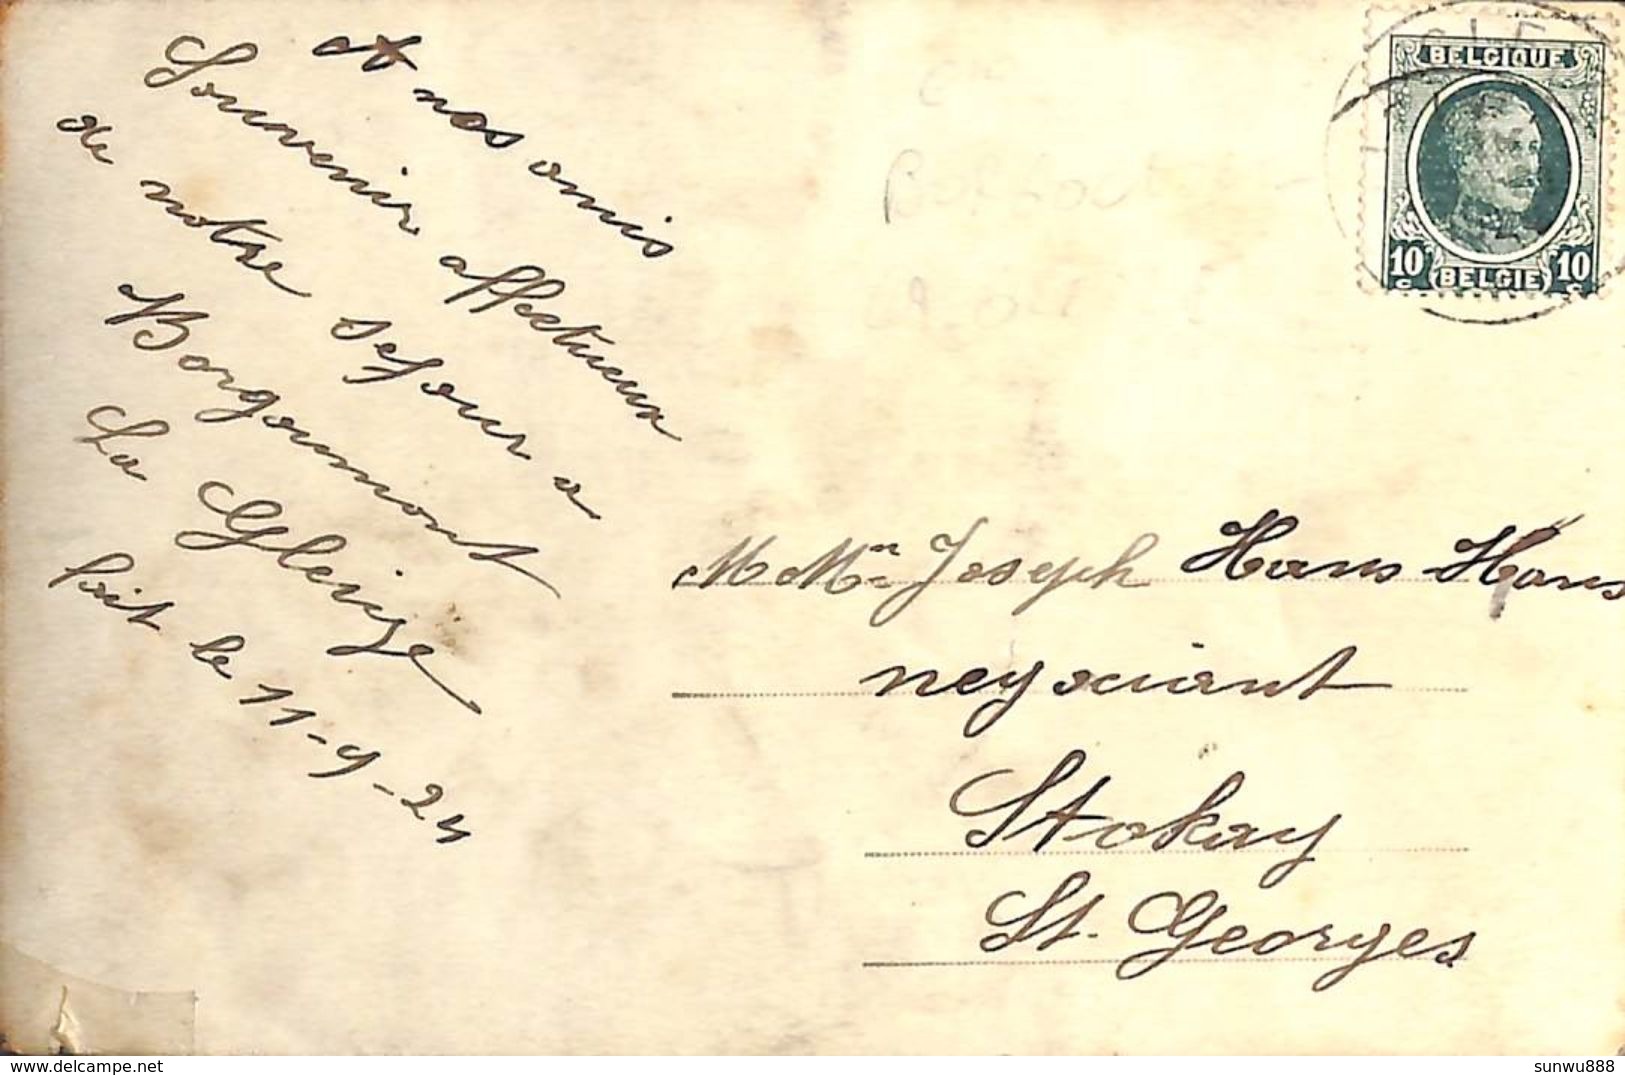 A nos amis
Souvenir affectueux
de notre sejour a
Borgoumont
La Gleize
fait le 11-9-24
BELGIQUE
10 c BELGIE 10 c
M Mme Joseph Hans Hans
negociant
Stokay
St. Georges
sunwu888